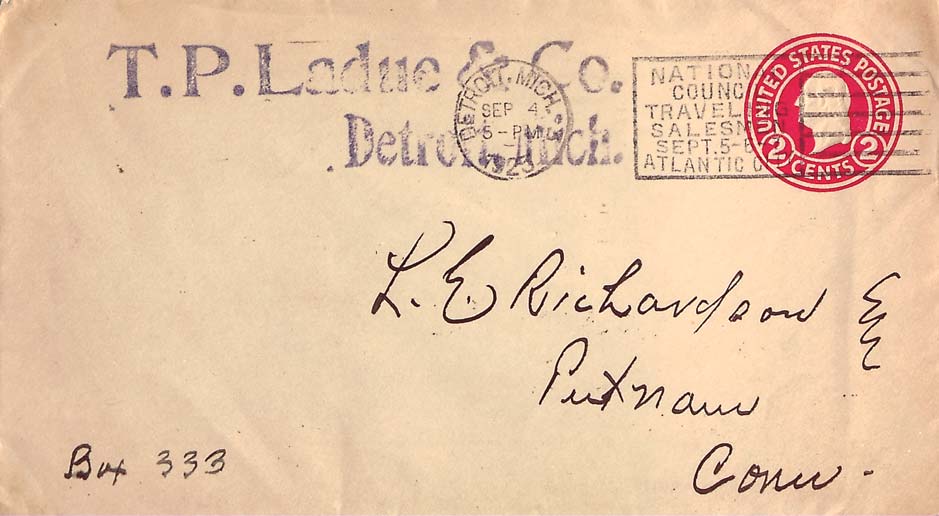 T.P. Ladue & Co.
Detroit, Mich.
DETROIT, MICH.
SEP 4
5-PM
1923
NATION
COUNC
TRAVEL
SALESM
SEPT. 5-6
ATLANTIC C
UNITED STATES POSTAGE
2 CENTS 2
L. E. Richardson Esq
Putnam
Conn.
Box 333